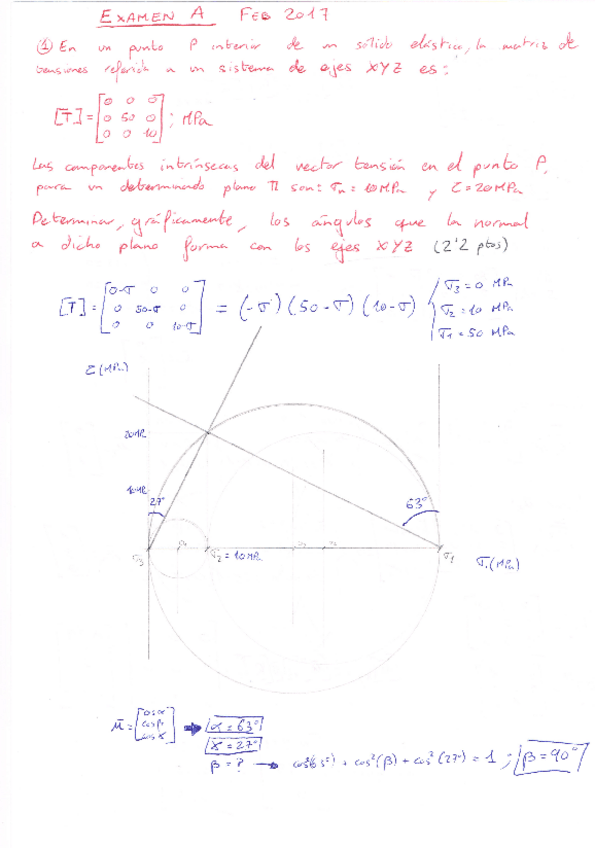 EXAMEN A FEB 2017
① En un punto P interior de un sólido elástico, la matriz de
tensiones referida a un sistema de ejes XYZ es:
[T] = [0 0 0
0 50 0
0 0 10] ; MPa
Las componentes intrínsecas del vector tensión en el punto P,
para un determinado plano π son: σn = 10 MPa y τ = 20 MPa
Determinar, gráficamente, los ángulos que la normal
a dicho plano forma con los ejes XYZ (2'2 ptos)
[T] = [0-σ 0 0
0 50-σ 0
0 0 10-σ] = (-σ) (50-σ) (10-σ)
σ3 = 0 MPa
σ2 = 10 MPa
σ1 = 50 MPa
τ (MPa)
20MPa
10MPa
27°
63°
σ3
σ2 = 10MPa
σ1
σ (MPa)
α = 63°
γ = 27°
β = ? → cos²(63°) + cos²(β) + cos²(27°) = 1 ; β = 90°